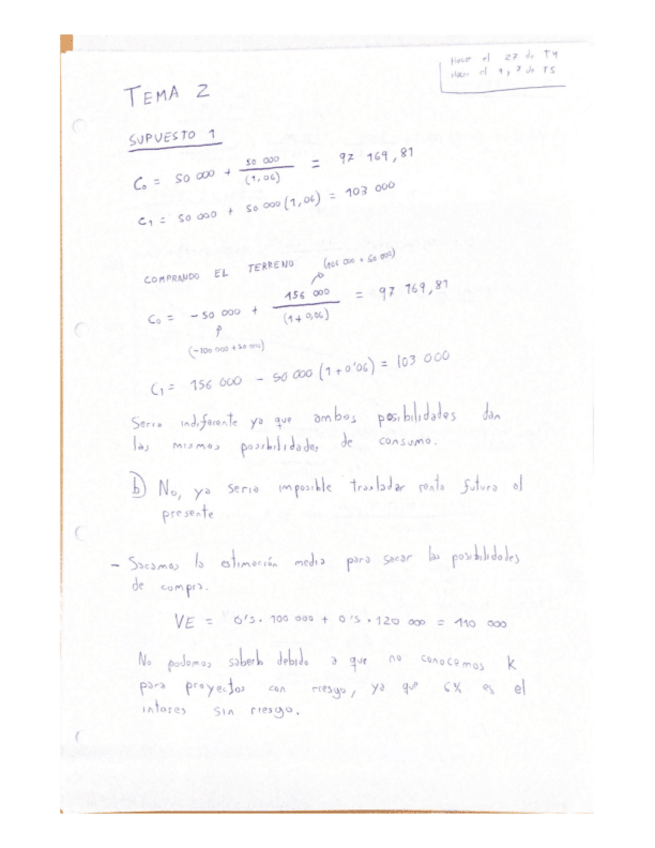 Hacer el 27 de T4
Hacer el 1 y 7 de T5
TEMA 2
SUPUESTO 1
C₀ = 50 000 + 50 000 / (1,06) = 97 169,81
C₁ = 50 000 + 50 000 (1,06) = 103 000
COMPRANDO EL TERRENO (106 000 + 50 000)
C₀ = -50 000 + 156 000 / (1+0,06) = 97 169,81
(-100 000 + 50 000)
C₁ = 156 000 - 50 000 (1+0'06) = 103 000
Seria indiferente ya que ambos posibilidades dan
las mismas posibilidades de consumo.
b) No, ya seria imposible trasladar renta futura al
presente
- Sacamos la estimación media para sacar las posibilidades
de compra.
VE = 0'5 · 100 000 + 0'5 · 120 000 = 110 000
No podemos saberlo debido a que no conocemos K
para proyectos con riesgo, ya que 6% es el
interes sin riesgo.